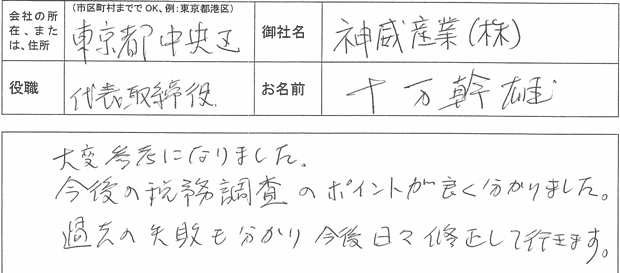 会社の所在、または、住所
(市区町村まででOK、例：東京都港区)
東京都中央区
御社名
神威産業(株)
役職
代表取締役
お名前
十万幹雄
大変参考になりました。
今後の税務調査のポイントが良く分かりました。
過去の失敗も分かり今後日々修正して行きます。